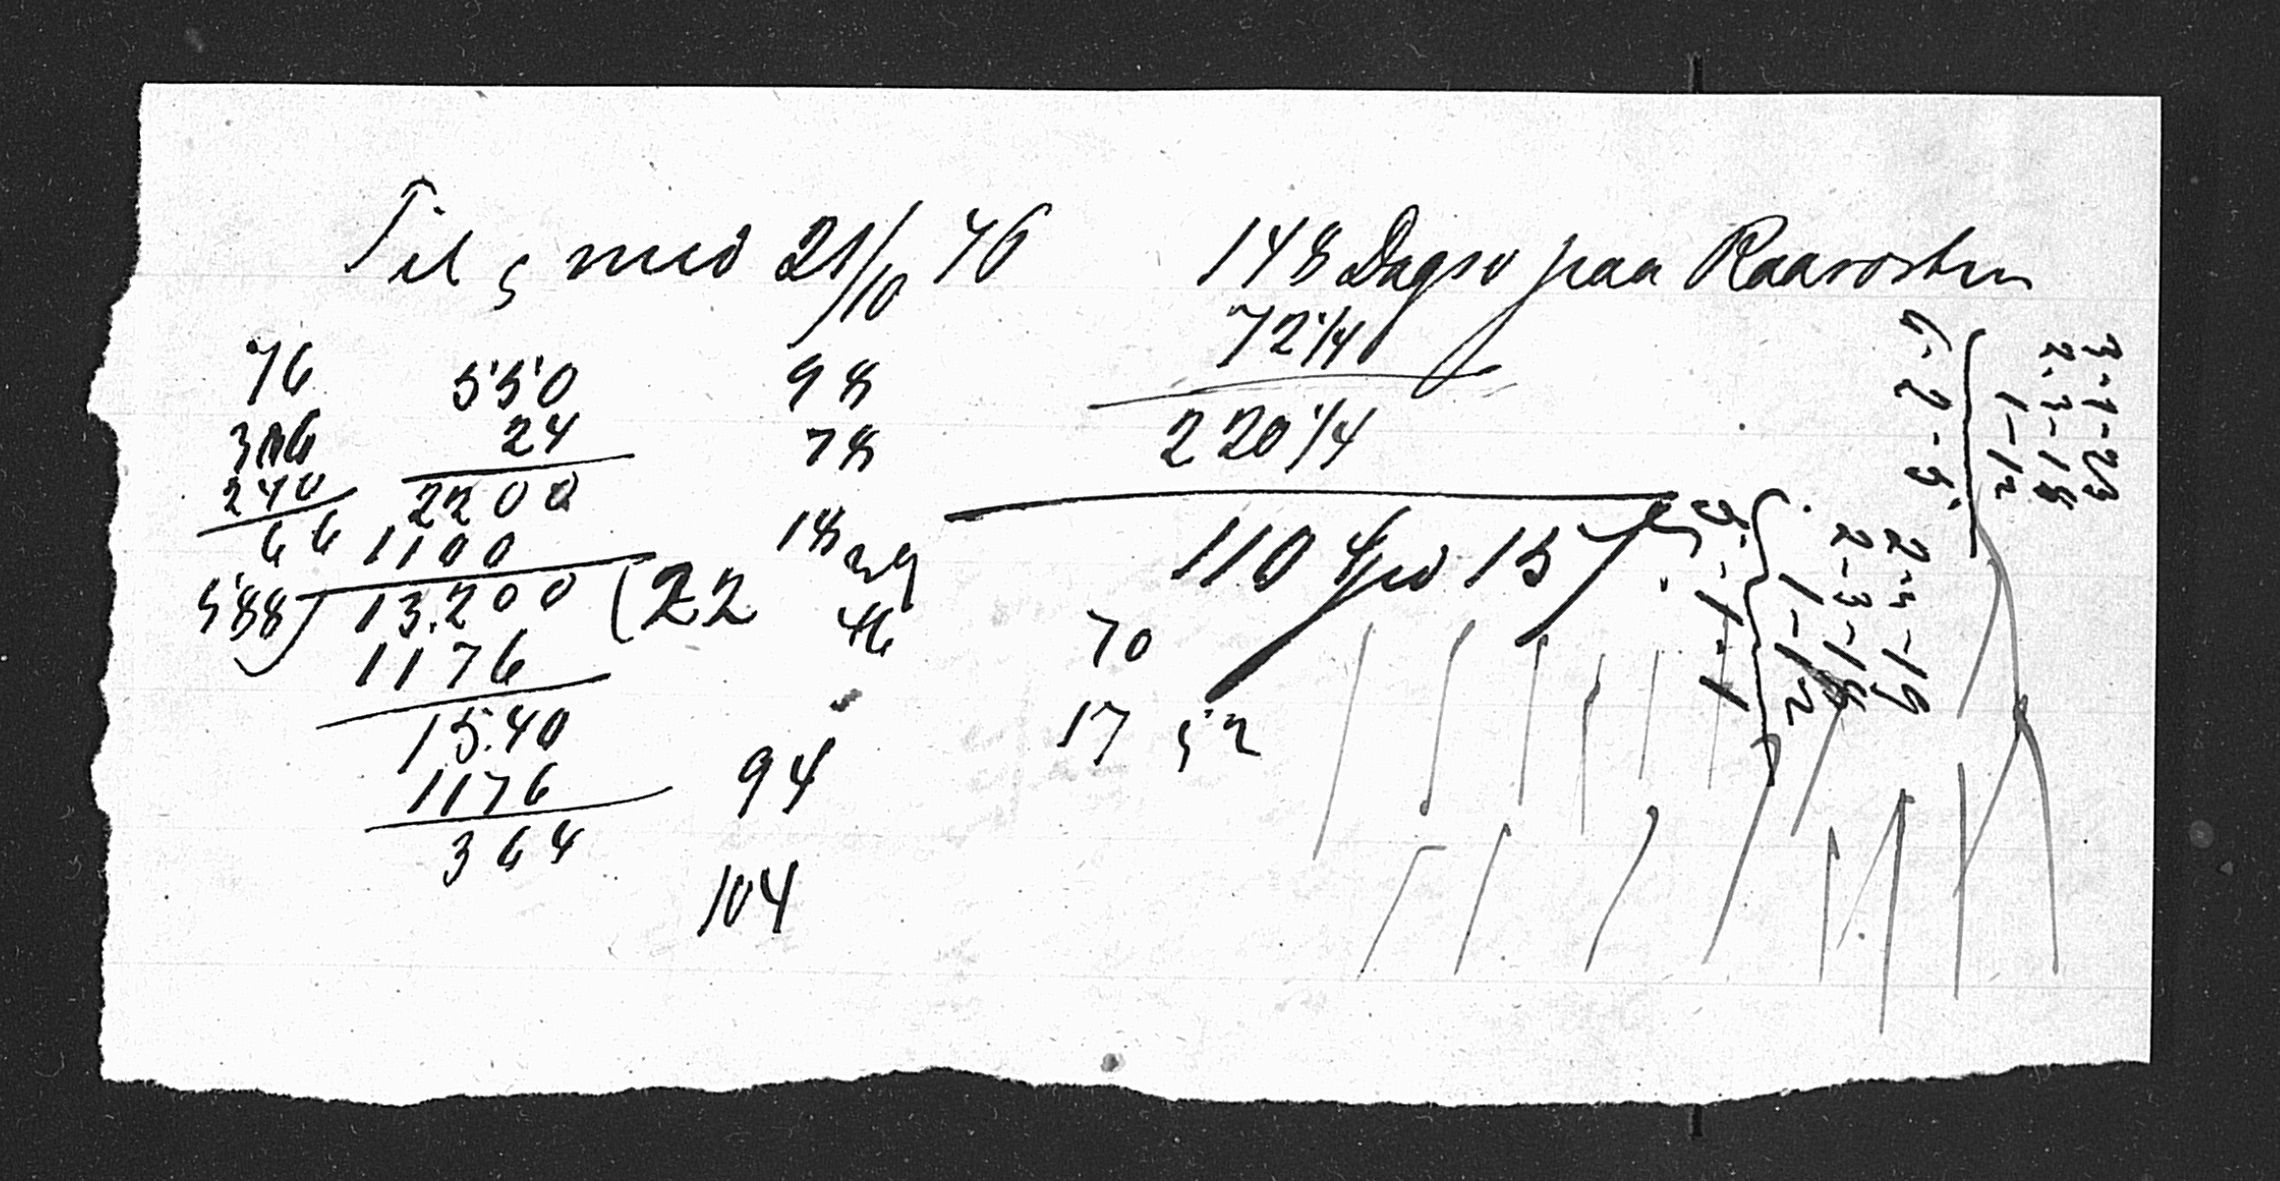 Til & med 21/10 76
148 Dagsv paa Raarosten
72 1/4
220 1/4
110
15
76
306
240
66
550
24
2200
1100
588) 13.200 (22
1176
15.40
1176
364
98
78
18
39
46
94
104
70
17 52
3-1-23
2-3-18
1-12
6-2-5
2-3-19
2-3-18
1-12